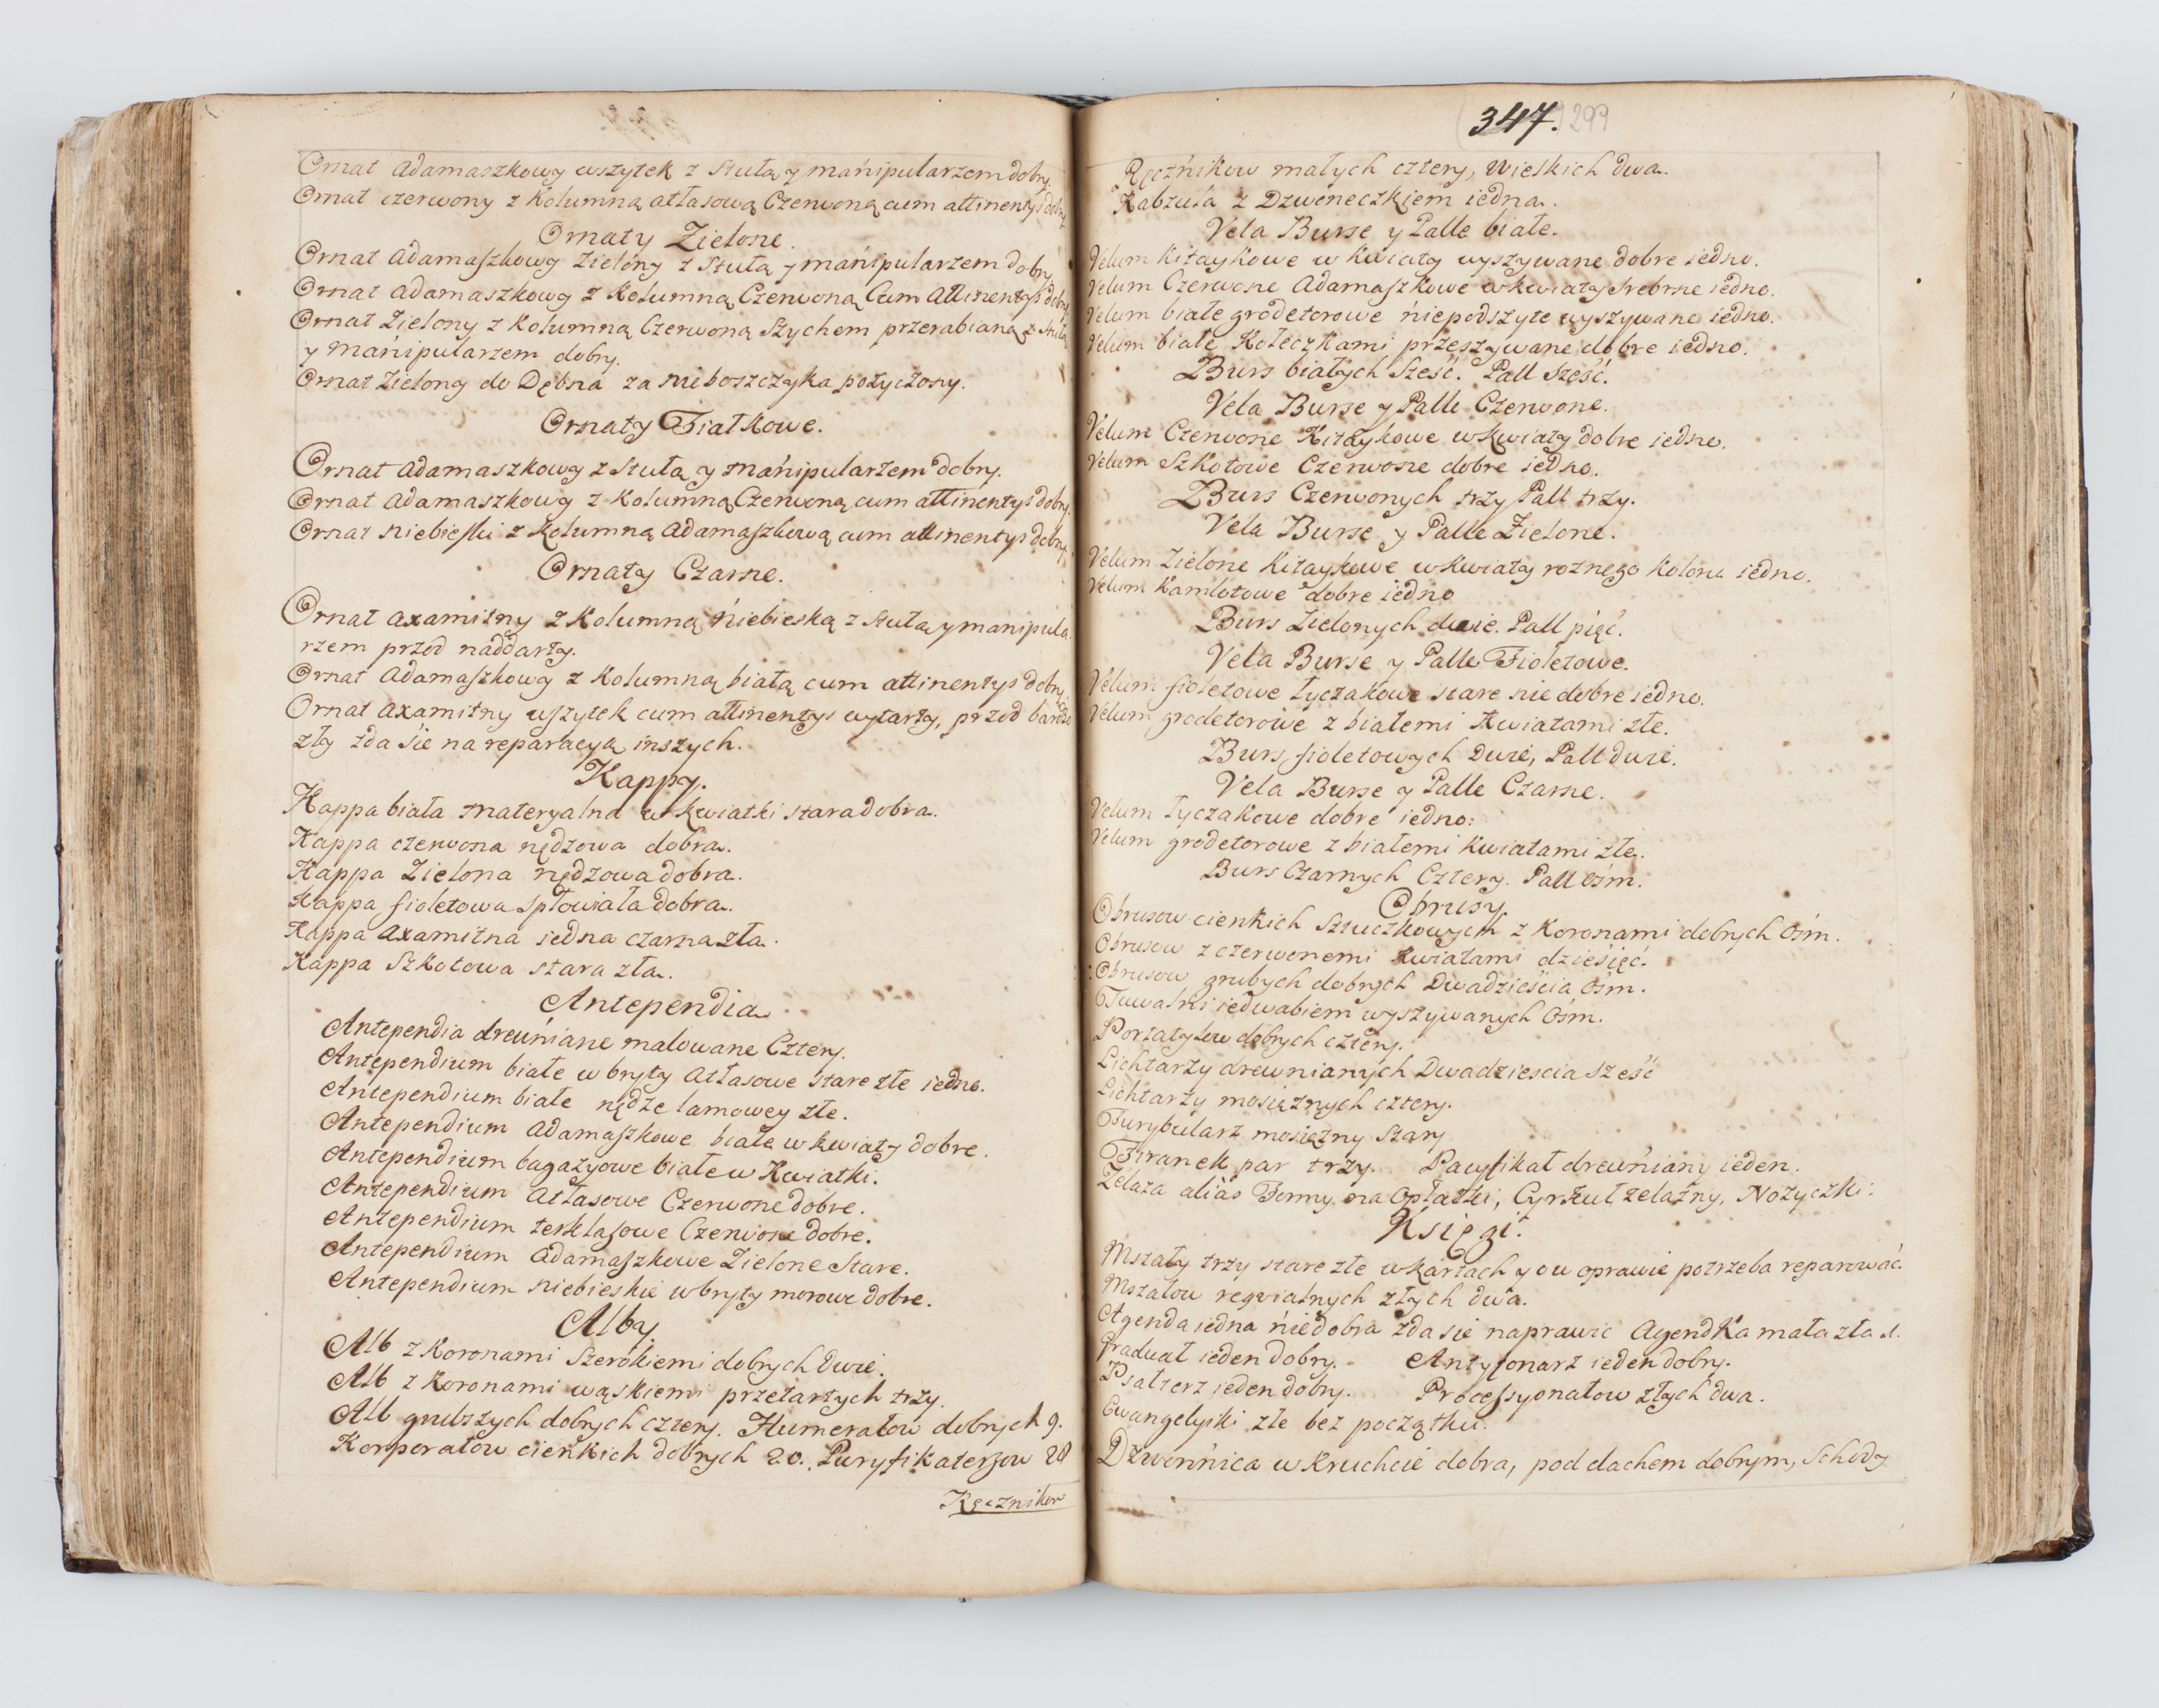 Ornat Adamaszkowy wszytek z Stułą y mańipularzem dobry
Ornat czerwony z Kolumną atłasową Czerwoną cum attinentys dobry
Ornaty Zielone.
Ornat Adamaszkowy Zielony z Stułą y mańipularzem dobry
Ornat Adamaszkowy z Kolumną Czerwoną Cum Attinentys dobry
Ornat Zielony z Kolumną Czerwoną Sztychem przerabianą z Stułą
y mańipularzem dobry.
Ornat Zielony do Dębna za nieboszczyka pożyczony.
Ornaty Fiałkowe.
Ornat Adamaszkowy z Stułą y mańipularzem dobry.
Ornat Adamaszkowy z Kolumną Czerwoną cum attinentys dobry.
Ornat niebieski z Kolumną Adamaszkową cum attinentys dobry
Ornaty Czarne.
Ornat axamitny z Kolumną ńiebieską z Stułą y manipula-
rzem przód naddarty.
Ornat Adamaszkowy z Kolumną białą cum attinentys dobry.
Ornat axamitny wszytek cum attinentys wytarty, przod bardzo
zły zda sie na reparacyą inszych.
Kappy.
Kappa biała materyalna w kwiatki stara dobra.
Kappa czerwona nędzowa dobra.
Kappa Zielona nędzowa dobra.
Kappa fioletowa Spłowiała dobra.
Kappa Axamitna iedna czarna zła.
Kappa Szkotowa stara zła.
Antependia
Antependia drewniane malowane Cztery.
Antependium białe w bryty Atłasowe stare złe iedno.
Antependium białe nędze lamowey złe.
Antependium Adamaszkowe białe w kwiaty dobre.
Antependium bagazyowe białe w Kwiatki.
Antependium Atłasowe Czerwone dobre.
Antependium terklasowe Czerwone dobre.
Antependium Adamaszkowe Zielone Stare.
Antependium niebieskie w bryty morowe dobre.
Alby
Alb z Koronami Szerokiemi dobrych dwie.
Alb z Koronami wąskiemi przetartych trzy.
Alb grubszych dobrych cztery. Humerałow dobrych 9.
Korporałow cieńkich dobrych 20. Puryfikaterzow 28
Ręcznikow
347. 299
Ręczńikow małych cztery, Wielkich dwa.
Kabzula z Dzwoneczkiem iedna.
Vela Burse y Palle białe.
Velum Kitaykowe w kwiaty wyszywane dobre iedno.
Velum Czerwone Adamaszkowe w kwiaty Srebrne iedno.
Velum białe grodetorowe ńiepodszyte wyszywane iedno.
Velum białe Kołeczkami przeszywane dobre iedno.
Burs białych sześć. Pall sześć.
Vela Burse y Palle Czerwone.
Velum Czerwone Kitaykowe w kwiaty dobre iedno.
Velum Szkotowe Czerwone dobre iedno.
Burs Czerwonych trzy Pall trzy.
Vela Burse y Palle Zielone.
Velum Zielone Kitaykowe w kwiaty roznego koloru iedno.
Velum Kamlotowe dobre iedno
Burs Zielonych dwie. Pall pięć.
Vela Burse y Palle Fioletowe.
Velum fioletowe łyczakowe stare nie dobre iedno.
Velum grodetorowe z białemi Kwiatami złe.
Burs fioletowych Dwie, Pall dwie.
Vela Burse y Palle Czarne.
Velum łyczakowe dobre iedno:
Velum grodetorowe z białemi Kwiatami złe.
Burs Czarnych Cztery. Pall ośm.
Obrusy
Obrusow cienkich Sztuczkowych z Koronami dobrych Ośm.
Obrusow z czerwonemi Kwiatami dziesięć.
Obrusow grubych dobrych Dwadzieścia Ośm.
Tuwalni iedwabiem wyszywanych Ośm.
Portatylow dobrych cztery.
Lichtarzy drewnianych Dwadziescia Sześć
Lichtarzy mosiężnych cztery.
Turybularz mosiężny Stary
Firanek par trzy. Pacyfikał drewńiany ieden.
Zelaza aliàs Formy na Opłatki, Cyrkuł zelazny, Nozyczki:
Księgi.
Mszały trzy stare złe w kartach y ow oprawie potrzeba reparować.
Mszałow reqvialnych złych dwa.
Agenda iedna ńiedobra zda sie naprawic Agendka mała zła 1.
Graduał ieden dobry. Antyfonarz ieden dobry.
Psałterz ieden dobry. Processyonałow złych dwa.
Ewangelyiki złe bez początku.
Dzwonńica w Kruchcie dobra, pod dachem dobrym, Schody